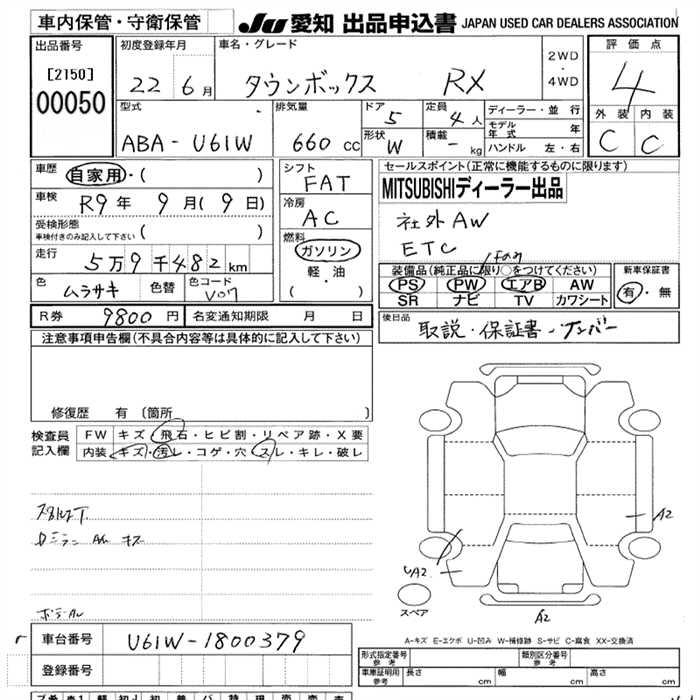 車内保管・守衛保管 JU 愛知 出品申込書 JAPAN USED CAR DEALERS ASSOCIATION
出品番号
[2150]
00050
初度登録年月
22 6月
車名・グレード
タウンボックス RX
2WD
・
4WD
評価点
4
外装 内装
C C
型式
ABA-U61W
排気量
660 cc
ドア
5
形状
W
定員
4人
積載
- kg
ディーラー・並行
モデル年式 年
ハンドル 左・右
車歴
自家用・( )
車検
R9年 9月(9日)
受検形態
車検付きのみ記入して下さい ( )
走行
5万9千482km
色
ムラサキ
色替
色コード
シフト
FAT
冷房
AC
燃料
ガソリン
・
軽・油
( )
セールスポイント(正常に機能するものに限ります)
MITSUBISHIディーラー出品
社外AW
ETC
装備品(純正品に限り○をつけてください)
PS PW エアB AW
SR ナビ TV カワシート
新車保証書
有・無
R券 9800円 名変通知期限 月 日
後日品
取説・保証書・ナンバー
注意事項申告欄(不具合内容等は具体的に記入して下さい)
修復歴 有〔箇所 〕
検査員
記入欄
FW キズ・飛石・ヒビ割・リペア跡・X要
内装 キズ・汚レ・コゲ・穴・スレ・キレ・破レ
A2
A2
スペア
A2
車台番号 U61W-1800379
登録番号
A-キズ E-エクボ U-凹み W-補修跡 S-サビ C-腐食 XX-交換済
形式指定番号
参考
類別区分番号
参考
車庫証明用
参考
長さ cm 幅 cm 高さ cm